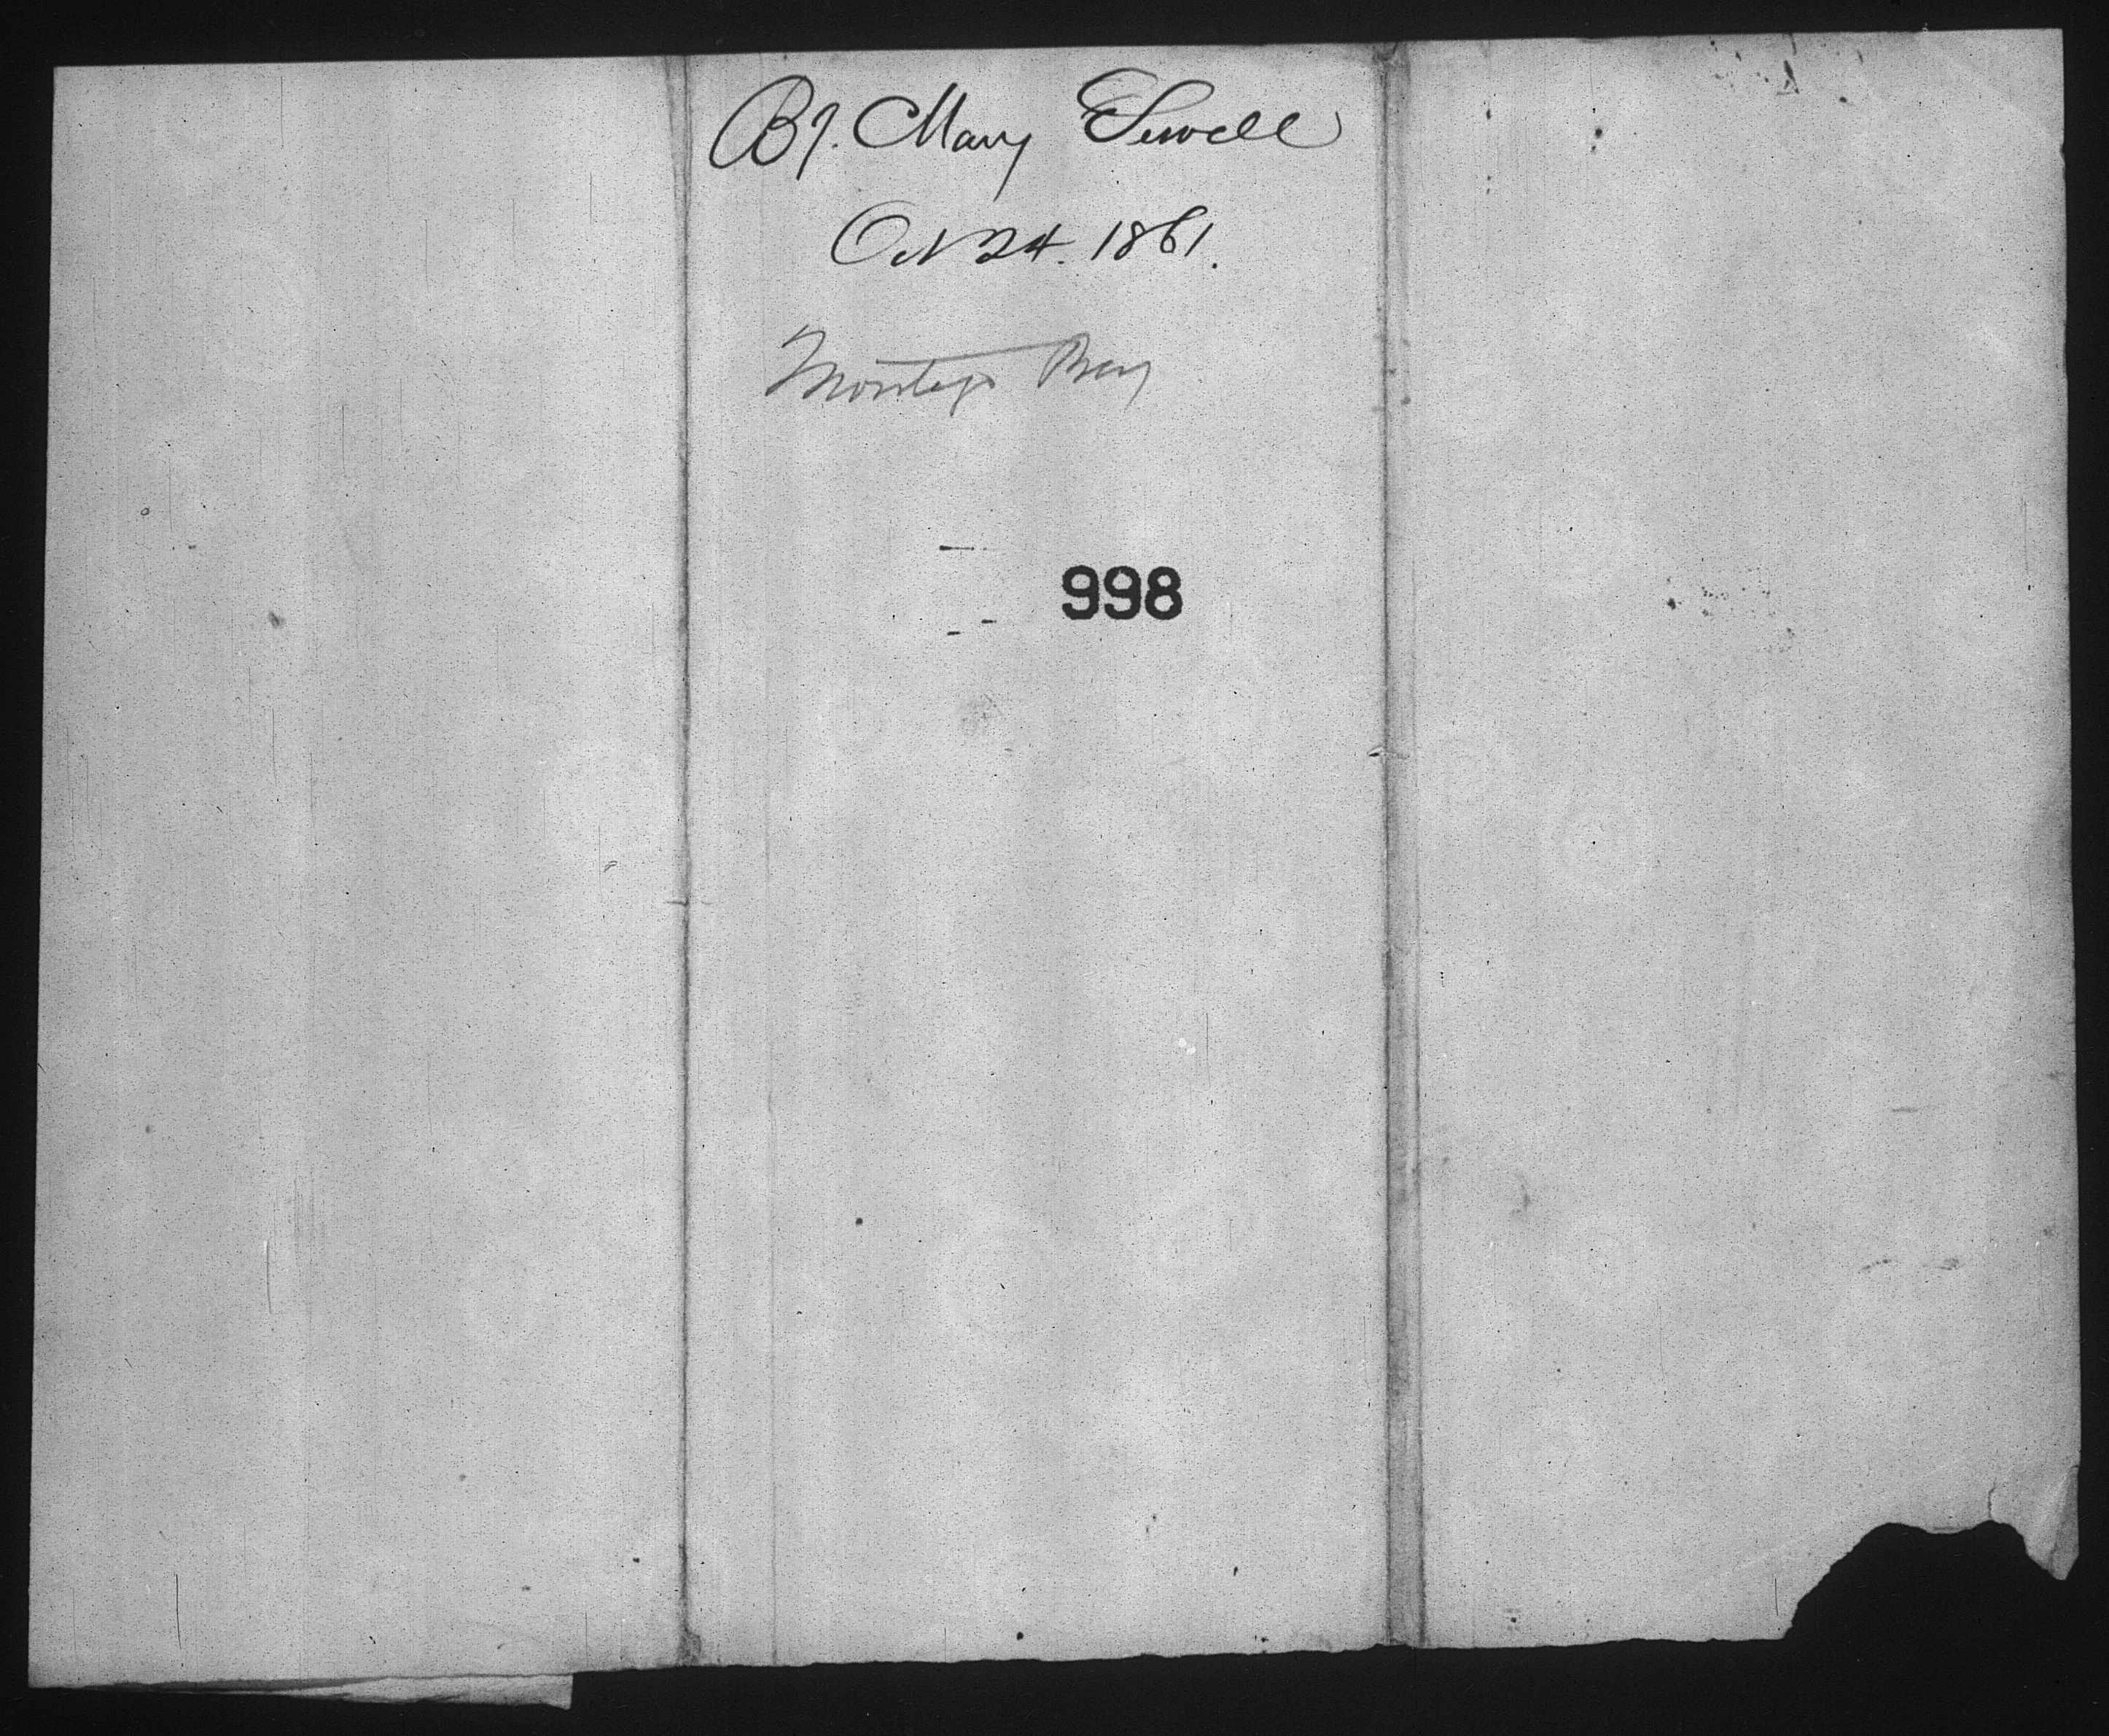 Bg. Mary E Sewell
Oct 24. 1861.
Montego Bay
998